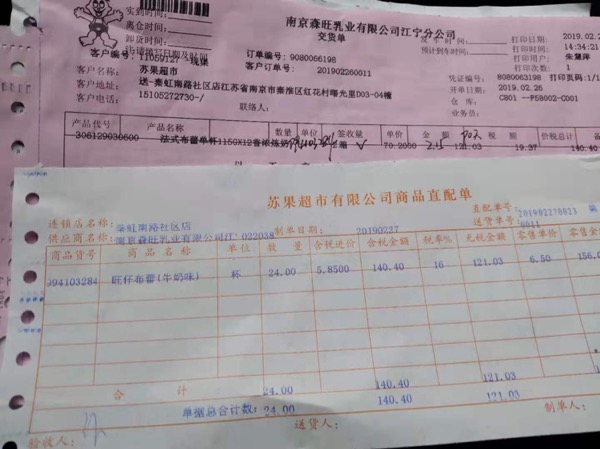 实到时间：
离仓时间：
卸货时间：
南京森旺乳业有限公司江宁分公司
交货单
打印日期 2019.02.2
打印时间 14:34:21
打印用户 朱慧萍
打印次数 1
预计到车时间：
客户编号：
订单编号：9080066198
客户订单号：201902260011
客户名称：苏果超市
凭证编号：8080063198 打印页码：1/1
开单日期：2019.02.26
仓库：C801
客户地址：送-秦虹南路社区店江苏省南京市秦淮区红花村曙光里D03-04幢
客户电话：15105272730-/
联络人：
业务员：
产品代号 产品名称 数量 单位 签收量 单价 金额 税额 价税总计
306129030600 70.2000 19.37 140.40
苏果超市有限公司商品直配单
直配单号：201902270023
送货单号：
连锁店名称：秦虹南路社区店
供应商名称：南京森旺乳业有限公司江 022038
制单日期：20190227
商品货号 商品名称 单位 数量 含税进价 含税金额 税率% 无税金额 零售单价 零售金
094103284 旺仔布蕾(牛奶味) 杯 24.00 5.8500 140.40 16 121.03 6.50 156.0
合计 24.00 140.40 121.03
单据总合计数：24.00 140.40 121.03
验收人： 送货人： 制单人：